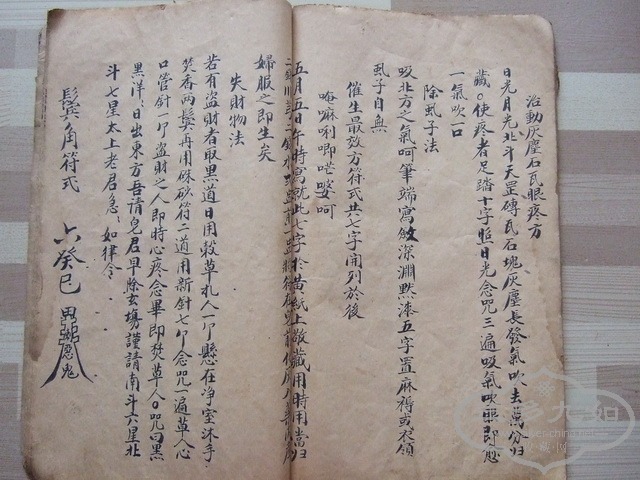 治動灰塵石瓦眼疼方
日光月光北斗天罡磚瓦石塊灰塵長發氣吹去萬分歸
藏○使疼者足踏十字照日光念咒三遍吸氣吹眼即愈
一氣吹口
除虱子法
吸北方之氣呵筆端寫敛深淵默漆五字置麻褥或衣領
虱子自無
催生最效方符式共七字開列於後
唵嘛利唧茫婆呵
五月五日午時寫就此七字於黃紙上敬藏用時用當归
婦服之即生矣
失財物法
若有盗財者取黑道日用榖草札人一个懸在净室沐手
焚香两鬓再用硃砂符二道用新針七个念咒一遍草人心
口管針一个盗財之人即時心疼念畢即焚草人○咒曰黑
黑洋日出東方吾請皃君早除玄塲謹請南斗六星北
斗七星太上老君急急如律令
鬂角符式
六癸巳
鬼